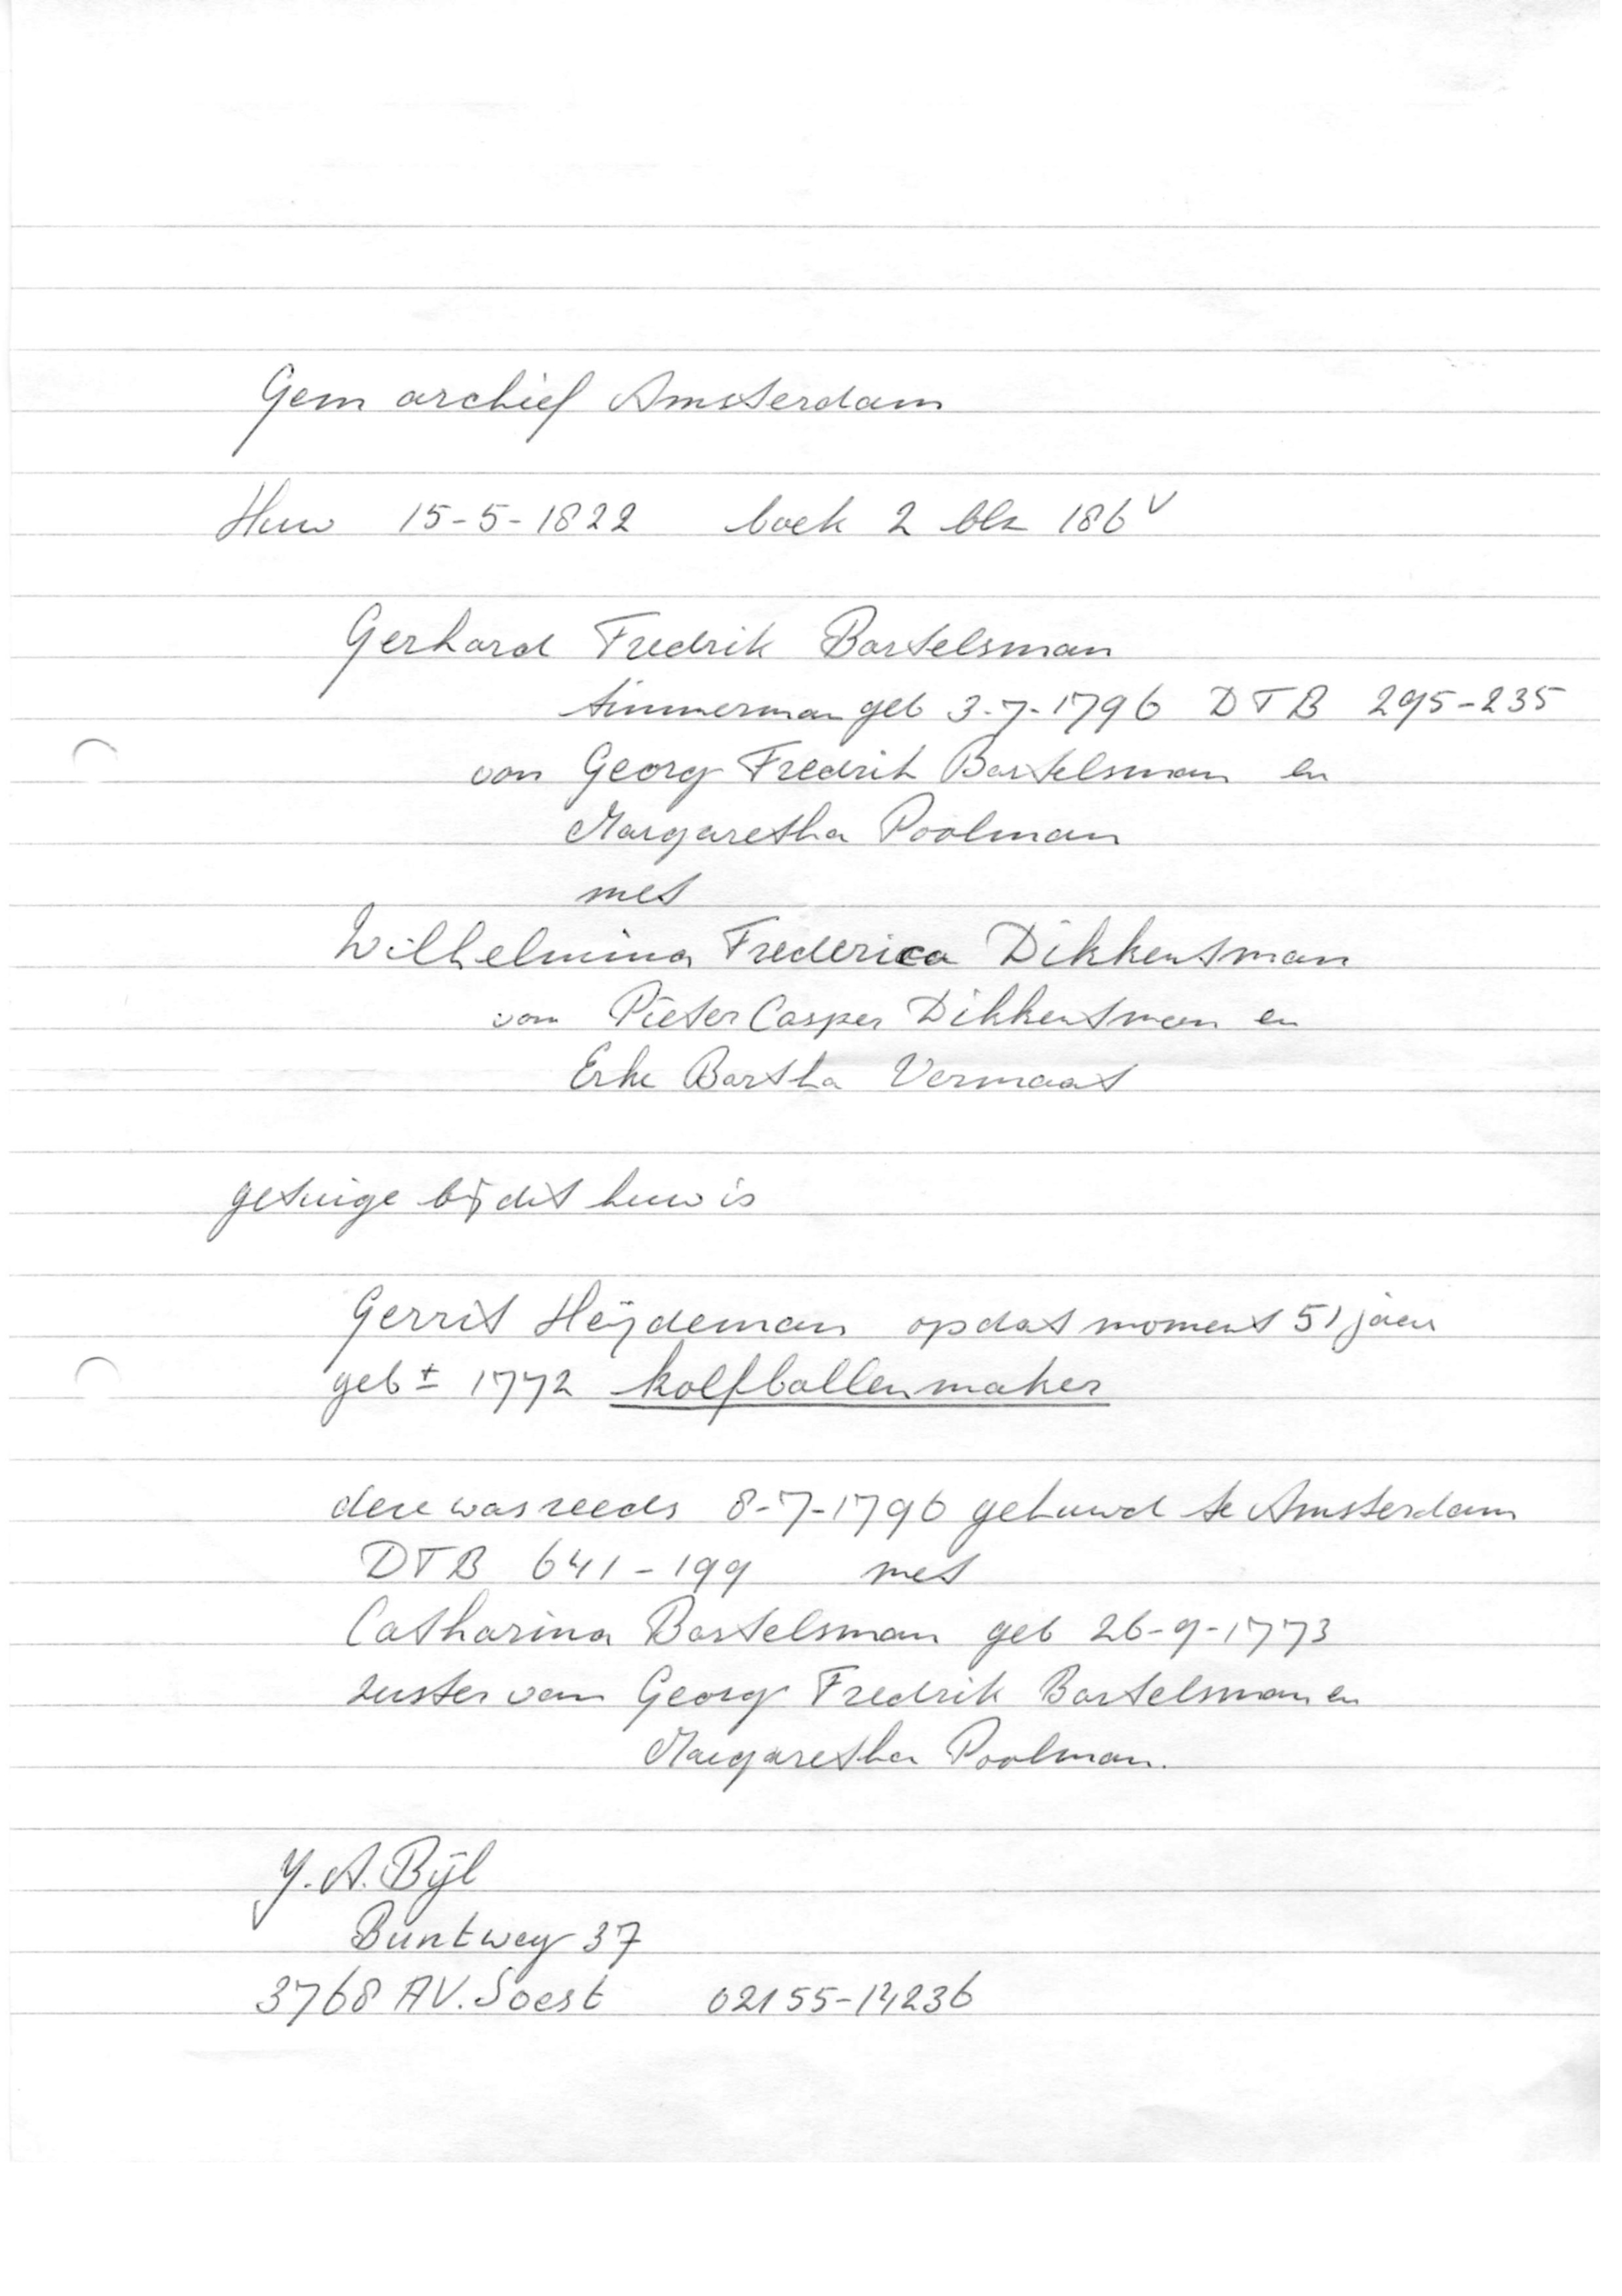 Gem archief Amsterdam
Huw 15-5-1822 boek 2 blz 186v
Gerhard Fredrik Bartelsman
timmerman geb 3-7-1796 DTB 295-235
van Georg Fredrik Bartelsman en
Margaretha Poolman
met
Wilhelmina Frederica Dikkentman
van Pieter Casper Dikkentman en
Erke Bartha Vermaat
getuige bij dit huw is
Gerrit Heijdeman op dat moment 51 jaar
geb ± 1772 kolfballenmaker
deze was reeds 8-7-1796 gehuwd te Amsterdam
DTB 641-199 met
Catharina Bartelsman geb 26-9-1773
zuster van Georg Fredrik Bartelsman en
Margaretha Poolman.
Y.A. Bijl
Buntweg 37
3768 AV. Soest 02155-14236